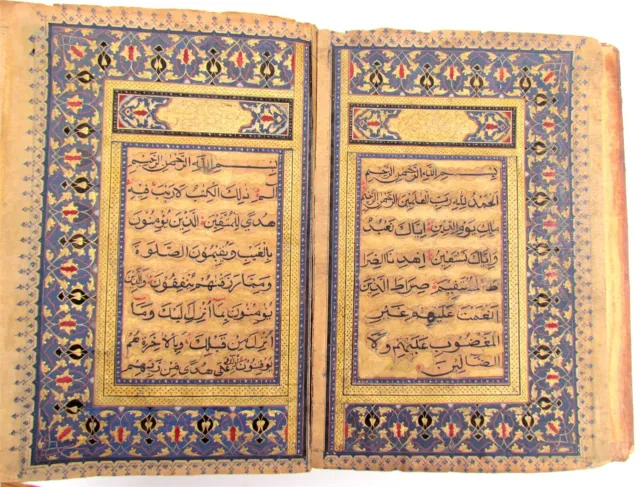 بِسْمِ اللهِ الرَّحْمٰنِ الرَّحِيمِ
اَلْحَمْدُ لِلّٰهِ رَبِّ الْعٰلَمِينَ الرَّحْمٰنِ الرَّحِيمِ
مٰلِكِ يَوْمِ الدِّينِ اِيَّاكَ نَعْبُدُ
وَاِيَّاكَ نَسْتَعِينُ اِهْدِنَا الصِّرَا
طَ الْمُسْتَقِيمَ صِرَاطَ الَّذِينَ
اَنْعَمْتَ عَلَيْهِمْ غَيْرِ
الْمَغْضُوبِ عَلَيْهِمْ وَلَا
الضَّالِّينَ
بِسْمِ اللهِ الرَّحْمٰنِ الرَّحِيمِ
الٓمٓ ذٰلِكَ الْكِتٰبُ لَا رَيْبَ فِيهِ
هُدًى لِلْمُتَّقِينَ الَّذِينَ يُؤْمِنُونَ
بِالْغَيْبِ وَيُقِيمُونَ الصَّلٰوةَ
وَمِمَّا رَزَقْنٰهُمْ يُنْفِقُونَ وَالَّذِينَ
يُؤْمِنُونَ بِمَا اُنْزِلَ اِلَيْكَ وَمَا
اُنْزِلَ مِنْ قَبْلِكَ وَبِالْاٰخِرَةِ هُمْ
يُوقِنُونَ اُولٰئِكَ عَلٰى هُدًى مِنْ رَبِّهِمْ